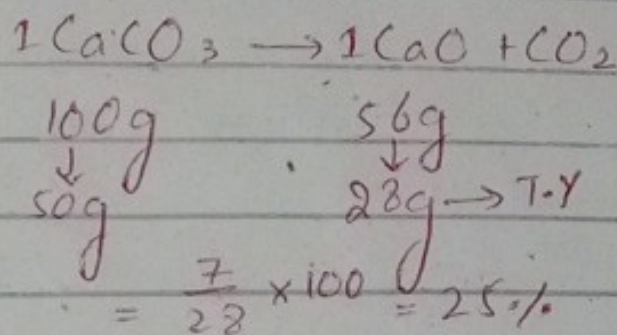 1 CaCO₃ → 1 CaO + CO₂
100g 56g
↓ ↓
50g 28g → T.Y
= 7/28 × 100 = 25%